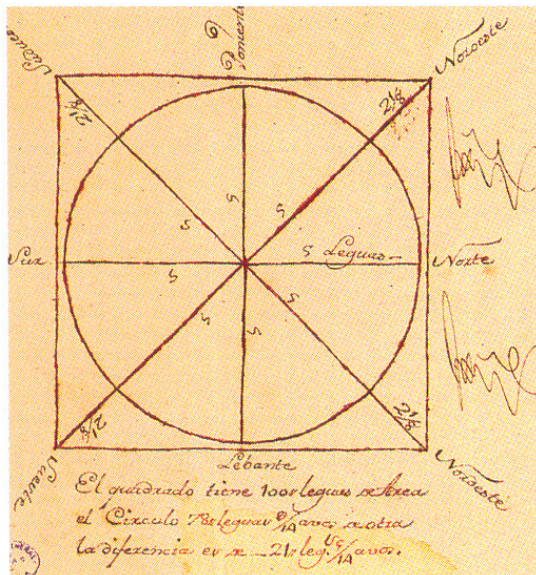 Poniente
Norueste
2 1/8
2 1/8
5
5
5
5 Leguas
Sur
Norte
5
5
5
5
2 1/8
2 1/8
Sueste
Lebante
Nordeste
El quadrado tiene 100 leguas de Area
el Circulo 78 leguas 8/14 avos de otra
la diferencia es de 21 leg.s 6/14 avos.